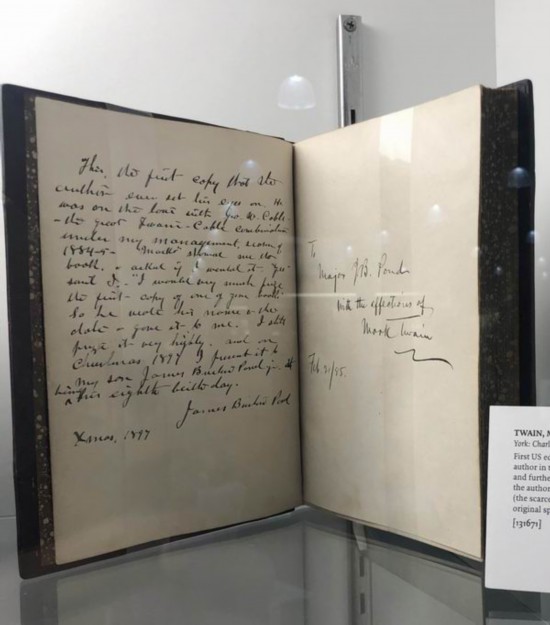 This, the first copy that the
author ever set his eyes on. He
was on the tour with Geo. W. Cable
- the great Twain-Cable combination
under my management, season of
1884-5- "Mark" showed me the
book, & asked if I wanted it. "Yes"
said I, "I would very much prize
the first copy of one of your books"
So he wrote his name & the
date & gave it to me. I still
prize it very highly, and on
Christmas 1897 I present it to
my son James Burton Pond jr. it
being his eighth birthday.
James Burton Pond
Xmas, 1897
To
Major J.B. Pond
with the affections of
Mark Twain
Feb 21/85.
TWAIN, M
York: Charl
First US ed
author in t
and furthe
the author
(the scarce
original sp
[131671]